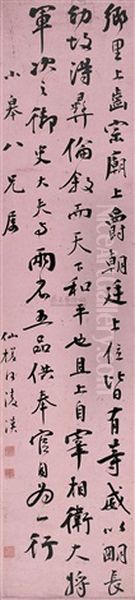 鄉里上齒宗廟上爵朝廷上位皆有等威以明長
幼故得彝倫敘而天下和平也且上自宰相衛大將
軍次之御史大夫與兩省五品供奉官自為一行
小皋八兄屬
仙槎何淩漢